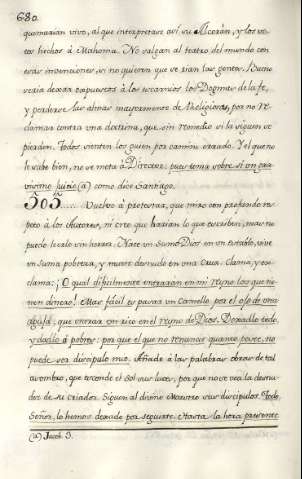 680.
quemarian vivo, al que interpretase así su Alcorán, y los ve-
ces hechos á Mahoma. No salgan al teatro del mundo con
esas invenciones, si no quieren que se rian las gentes. Bueno
seria dexar expuestos á los escarnios los Dogmas de la fe,
y perderse las almas mayormente de Religiosos, por no re-
clamar contra una doctrina, que sin remedio si la siguen se
pierden. Todos vienten los guien por camino errado. Y el que no
le sabe bien, no se meta á Director: pues toma sobre sí un gra-
vísimo juicio (a) como dice Santiago.
505.... Vuelvo á protestar, que miro con profundo res-
peto á los Autores, ni creo que harian lo que escriben; mas no
puedo leerlo sin horror. Nace un Sumo Dios en un establo, vive
en suma pobreza, y muere desnudo en una Cruz. Clama, y ex-
clama: ¡O qual dificilmente entrarán en mi reyno los que tie-
nen dineros! Mas fácil es pasar un Camello por el ojo de una
aguja, que entrar un rico en el reyno de Dios. Dexadlo todo,
y dadlo á pobres: por que el que no renuncia quanto posee, no
puede ser discipulo mio. Añade á las palabras obras de tal
asombro, que esconde el Sol sus luces, por que no se vea la desnu-
dez de su criador. Siguen al divino Maestro sus discipulos. Todo
Señor, lo hemos dexado por seguirte. Hasta la hora presente
(a) Jacob. 3.